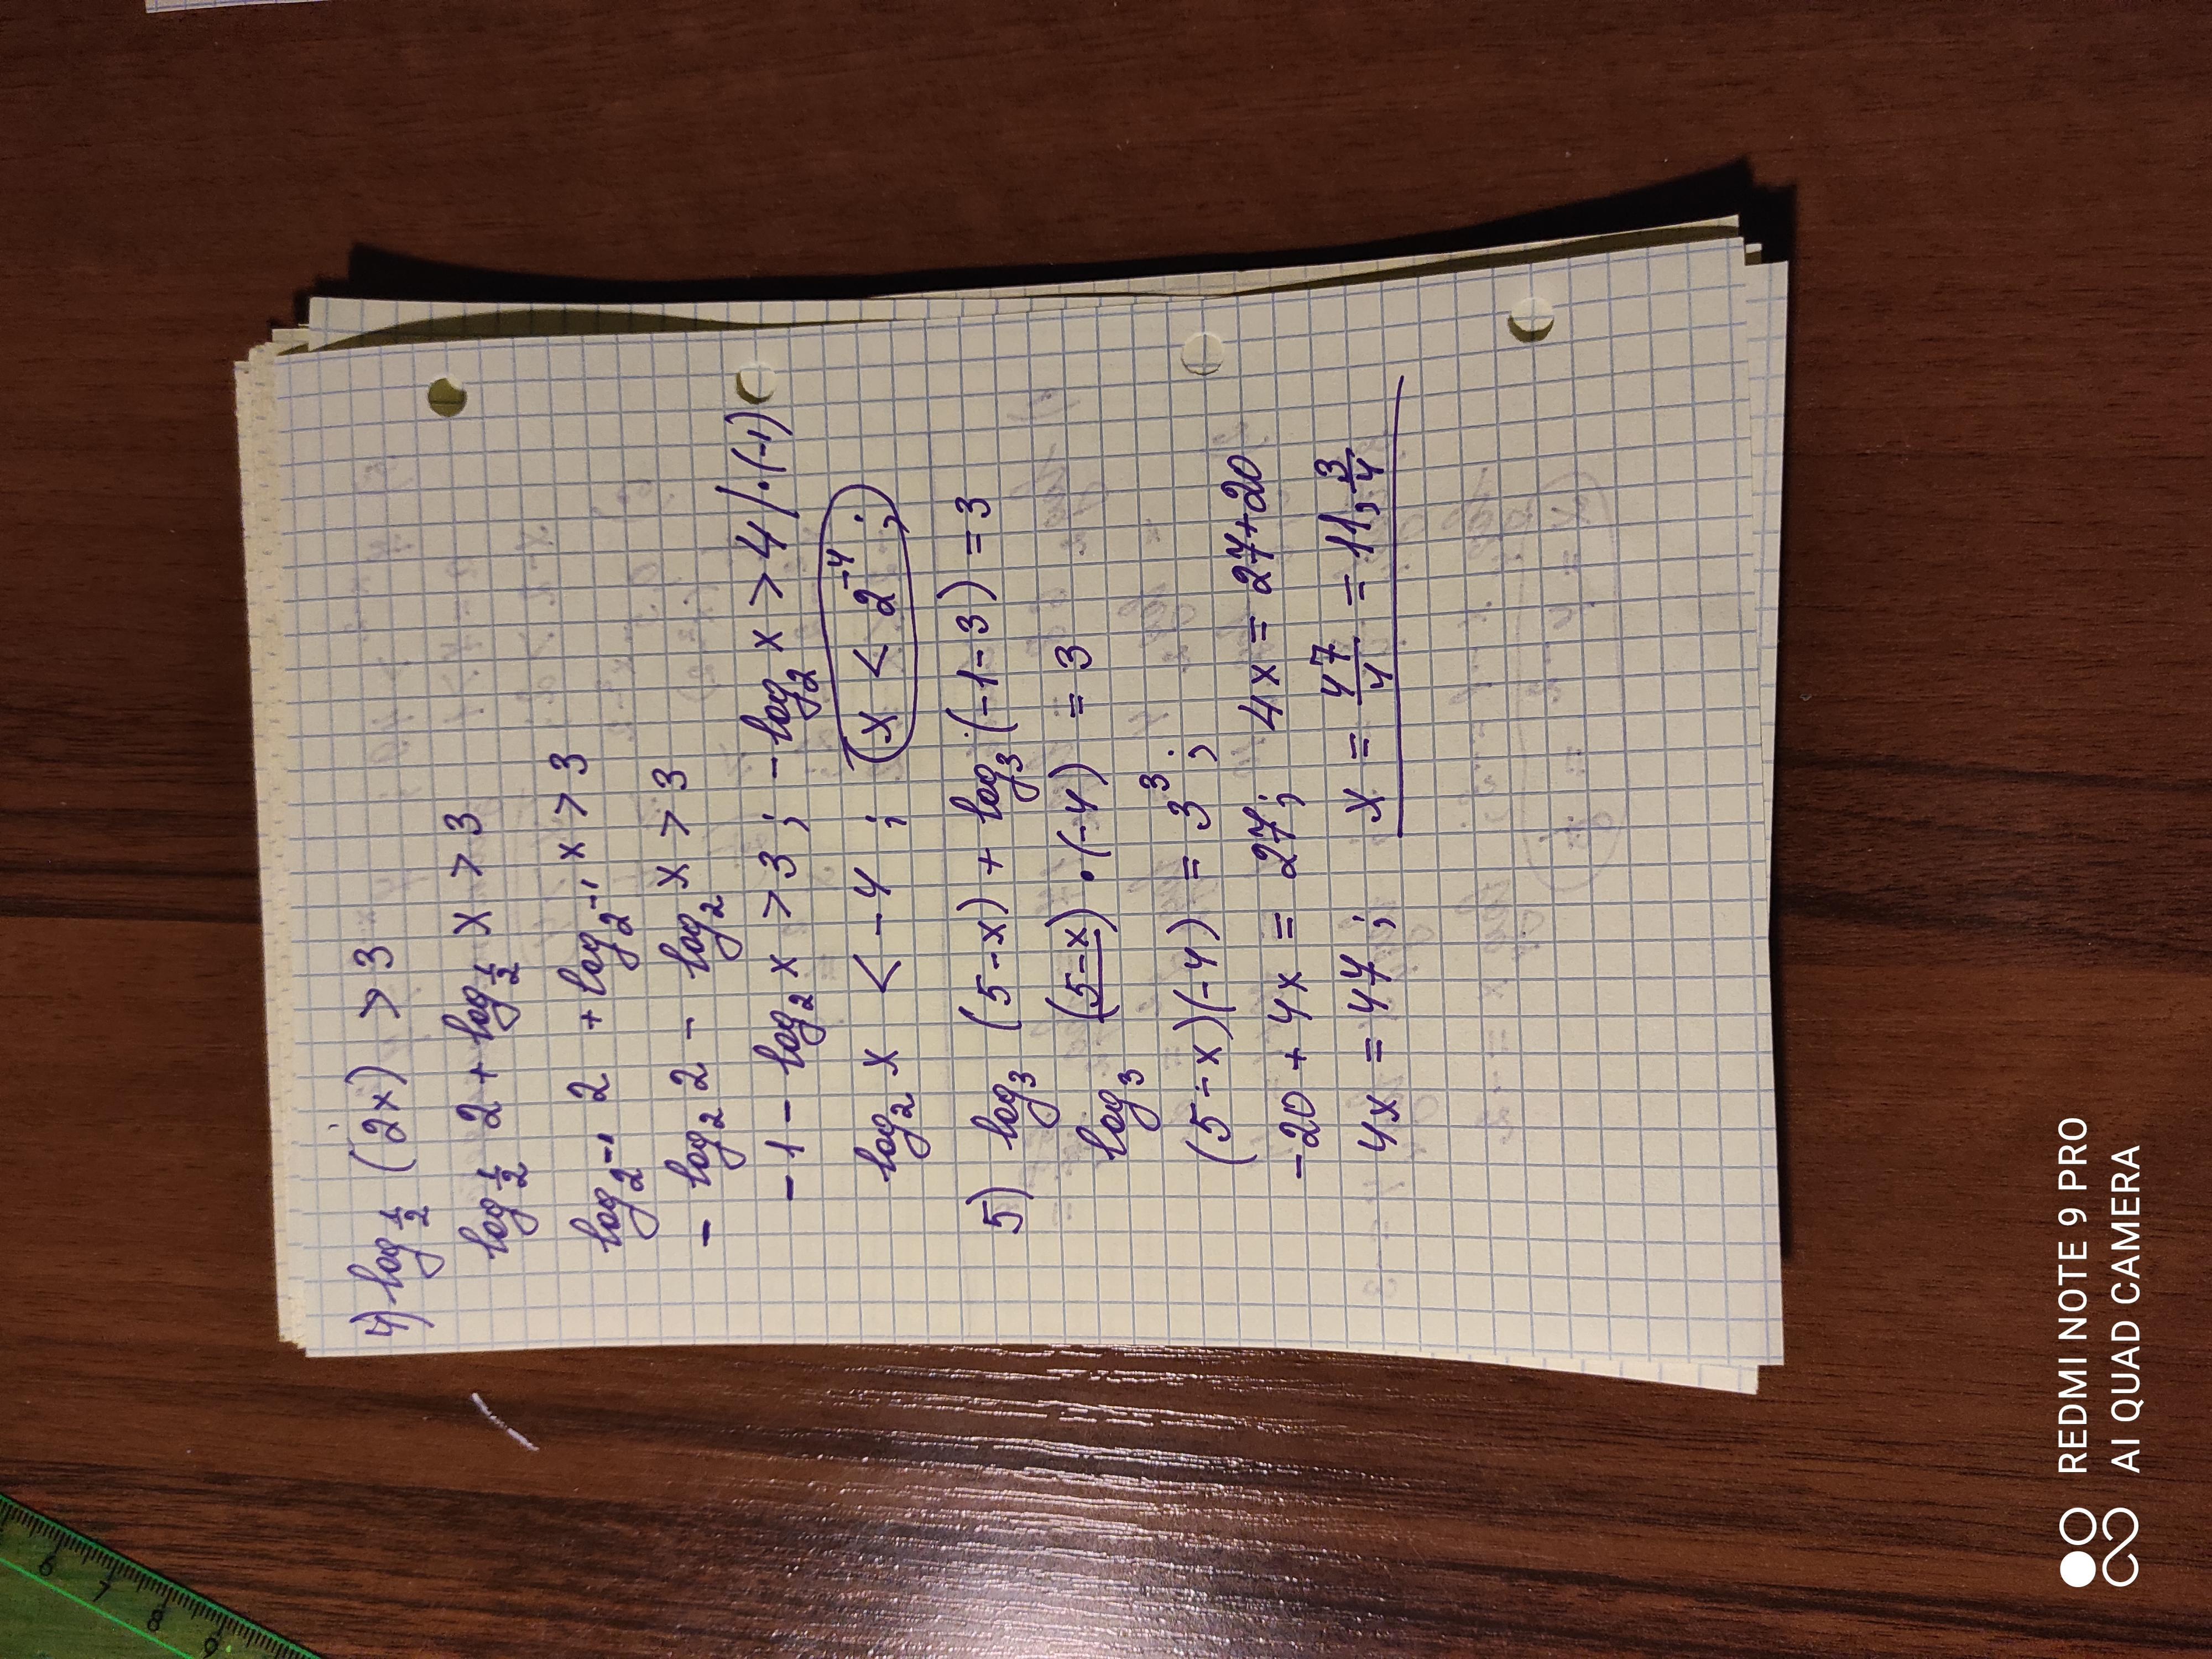 4) log½ (2x) > 3
log½ 2 + log½ x > 3
log₂₋₁ 2 + log₂₋₁ x > 3
- log₂ 2 - log₂ x > 3
-1 - log₂ x > 3; -log₂ x > 4 /·(-1)
log₂ x < -4; (x < 2⁻⁴;
5) log₃ (5-x) + log₃(-1-3) = 3
log₃ (5-x)·(-4) = 3
(5-x)(-4) = 3³;
-20 + 4x = 27; 4x = 27+20
4x = 47; x = 47/4 = 11, 3/4
6
7
8
9
REDMI NOTE 9 PRO
AI QUAD CAMERA